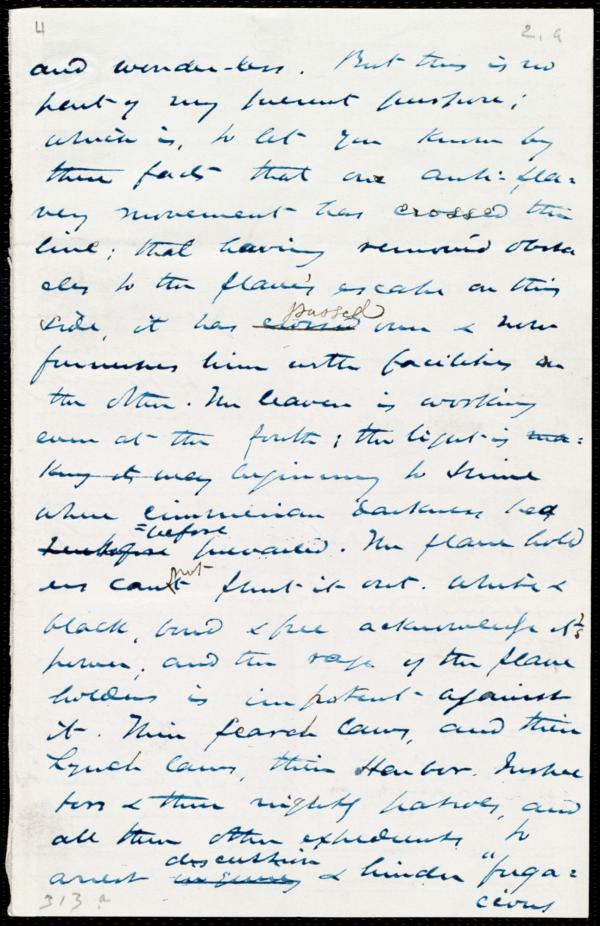 4 2.9
and wonder-less. But this is no
part of my present purpose;
which is, to let you know by
these facts that our anti-sla=
very movement has crossed the
line; that having removed obsta
cles to the slave's escape on this
side, it has crossed passed over & now
furnishes him with facilities on
the other. The leaven is working
even at the South; the light is ma=
king its way beginning to shine
where cimmerian darkness had
heretofore =before prevailed. The slave hold
ers cannot shut it out. White &
black, bond & free acknowledge its
power, and the rage of the slave
holders is impotent against
it. Their search laws, and their
Lynch laws, their Harbor Inspec
tors & their nightly patrols, and
all their other expedients to
arrest inquiry discussion & hinder "fuga=
cious
313